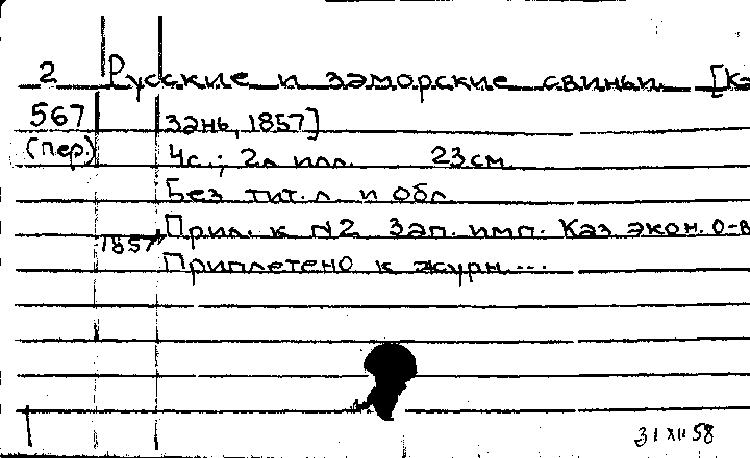 2 Русские и заморские свиньи [Ка
567 зань, 1857]
(пер.) 4с.; 2л илл. 23см
Без тит. л. и обл.
Прил. к №2 Зап. имп. Каз экон. о-в
1857
Приплетено к журн...
31 XII 58